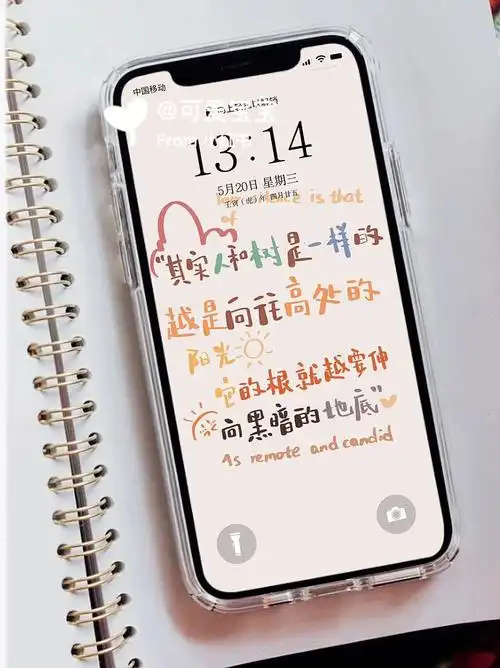 中国移动
@可爱宝宝
向上轻扫以解锁
13:14
5月20日 星期三
壬寅(虎)年 四月廿五
is that
of
"其实人和树是一样的
越是向往高处的
阳光
它的根就越要伸
向黑暗的地底"
As remote and candid